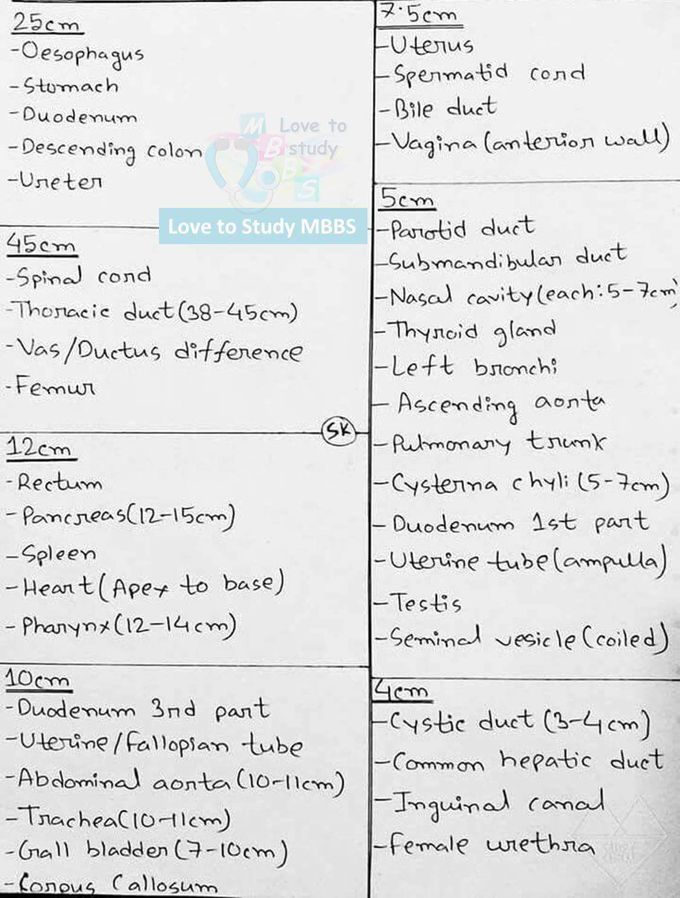 25cm
-Oesophagus
-Stomach
-Duodenum
-Descending colon
-Ureter
Love to
study
MBBS
Love to Study MBBS
45cm
-Spinal cord
-Thoracic duct(38-45cm)
-Vas/Ductus difference
-Femur
SK
12cm
-Rectum
-Pancreas(12-15cm)
-Spleen
-Heart(Apex to base)
-Pharynx(12-14cm)
10cm
-Duodenum 3rd part
-Uterine/Fallopian tube
-Abdominal aorta(10-11cm)
-Trachea(10-11cm)
-Gall bladder(7-10cm)
-Corpus Callosum
7.5cm
-Uterus
-Spermatid cord
-Bile duct
-Vagina(anterior wall)
5cm
-Parotid duct
-Submandibular duct
-Nasal cavity(each:5-7cm)
-Thyroid gland
-Left bronchi
-Ascending aorta
-Pulmonary trunk
-Cysterna chyli(5-7cm)
-Duodenum 1st part
-Uterine tube(ampulla)
-Testis
-Seminal vesicle(coiled)
4cm
-Cystic duct(3-4cm)
-Common hepatic duct
-Inguinal canal
-Female urethra